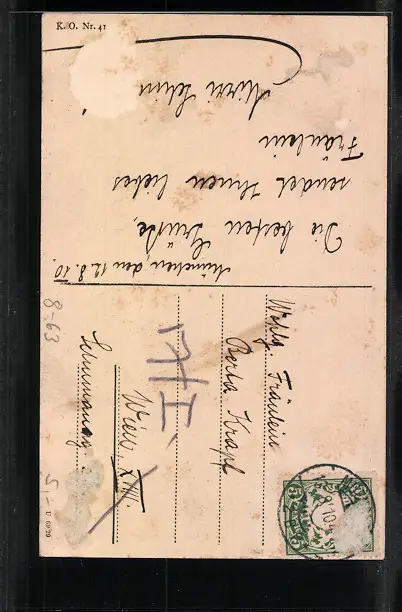 K. O. Nr. 41
München, den 12.8.10.
Die besten Grüße,
sendet Ihnen liebes
Fräulein
Mirzi
Wohlg. Fräulein
Berta Krapf
Wien, XIII.
17/I.
8-63
5,-
U 6929
8.10.